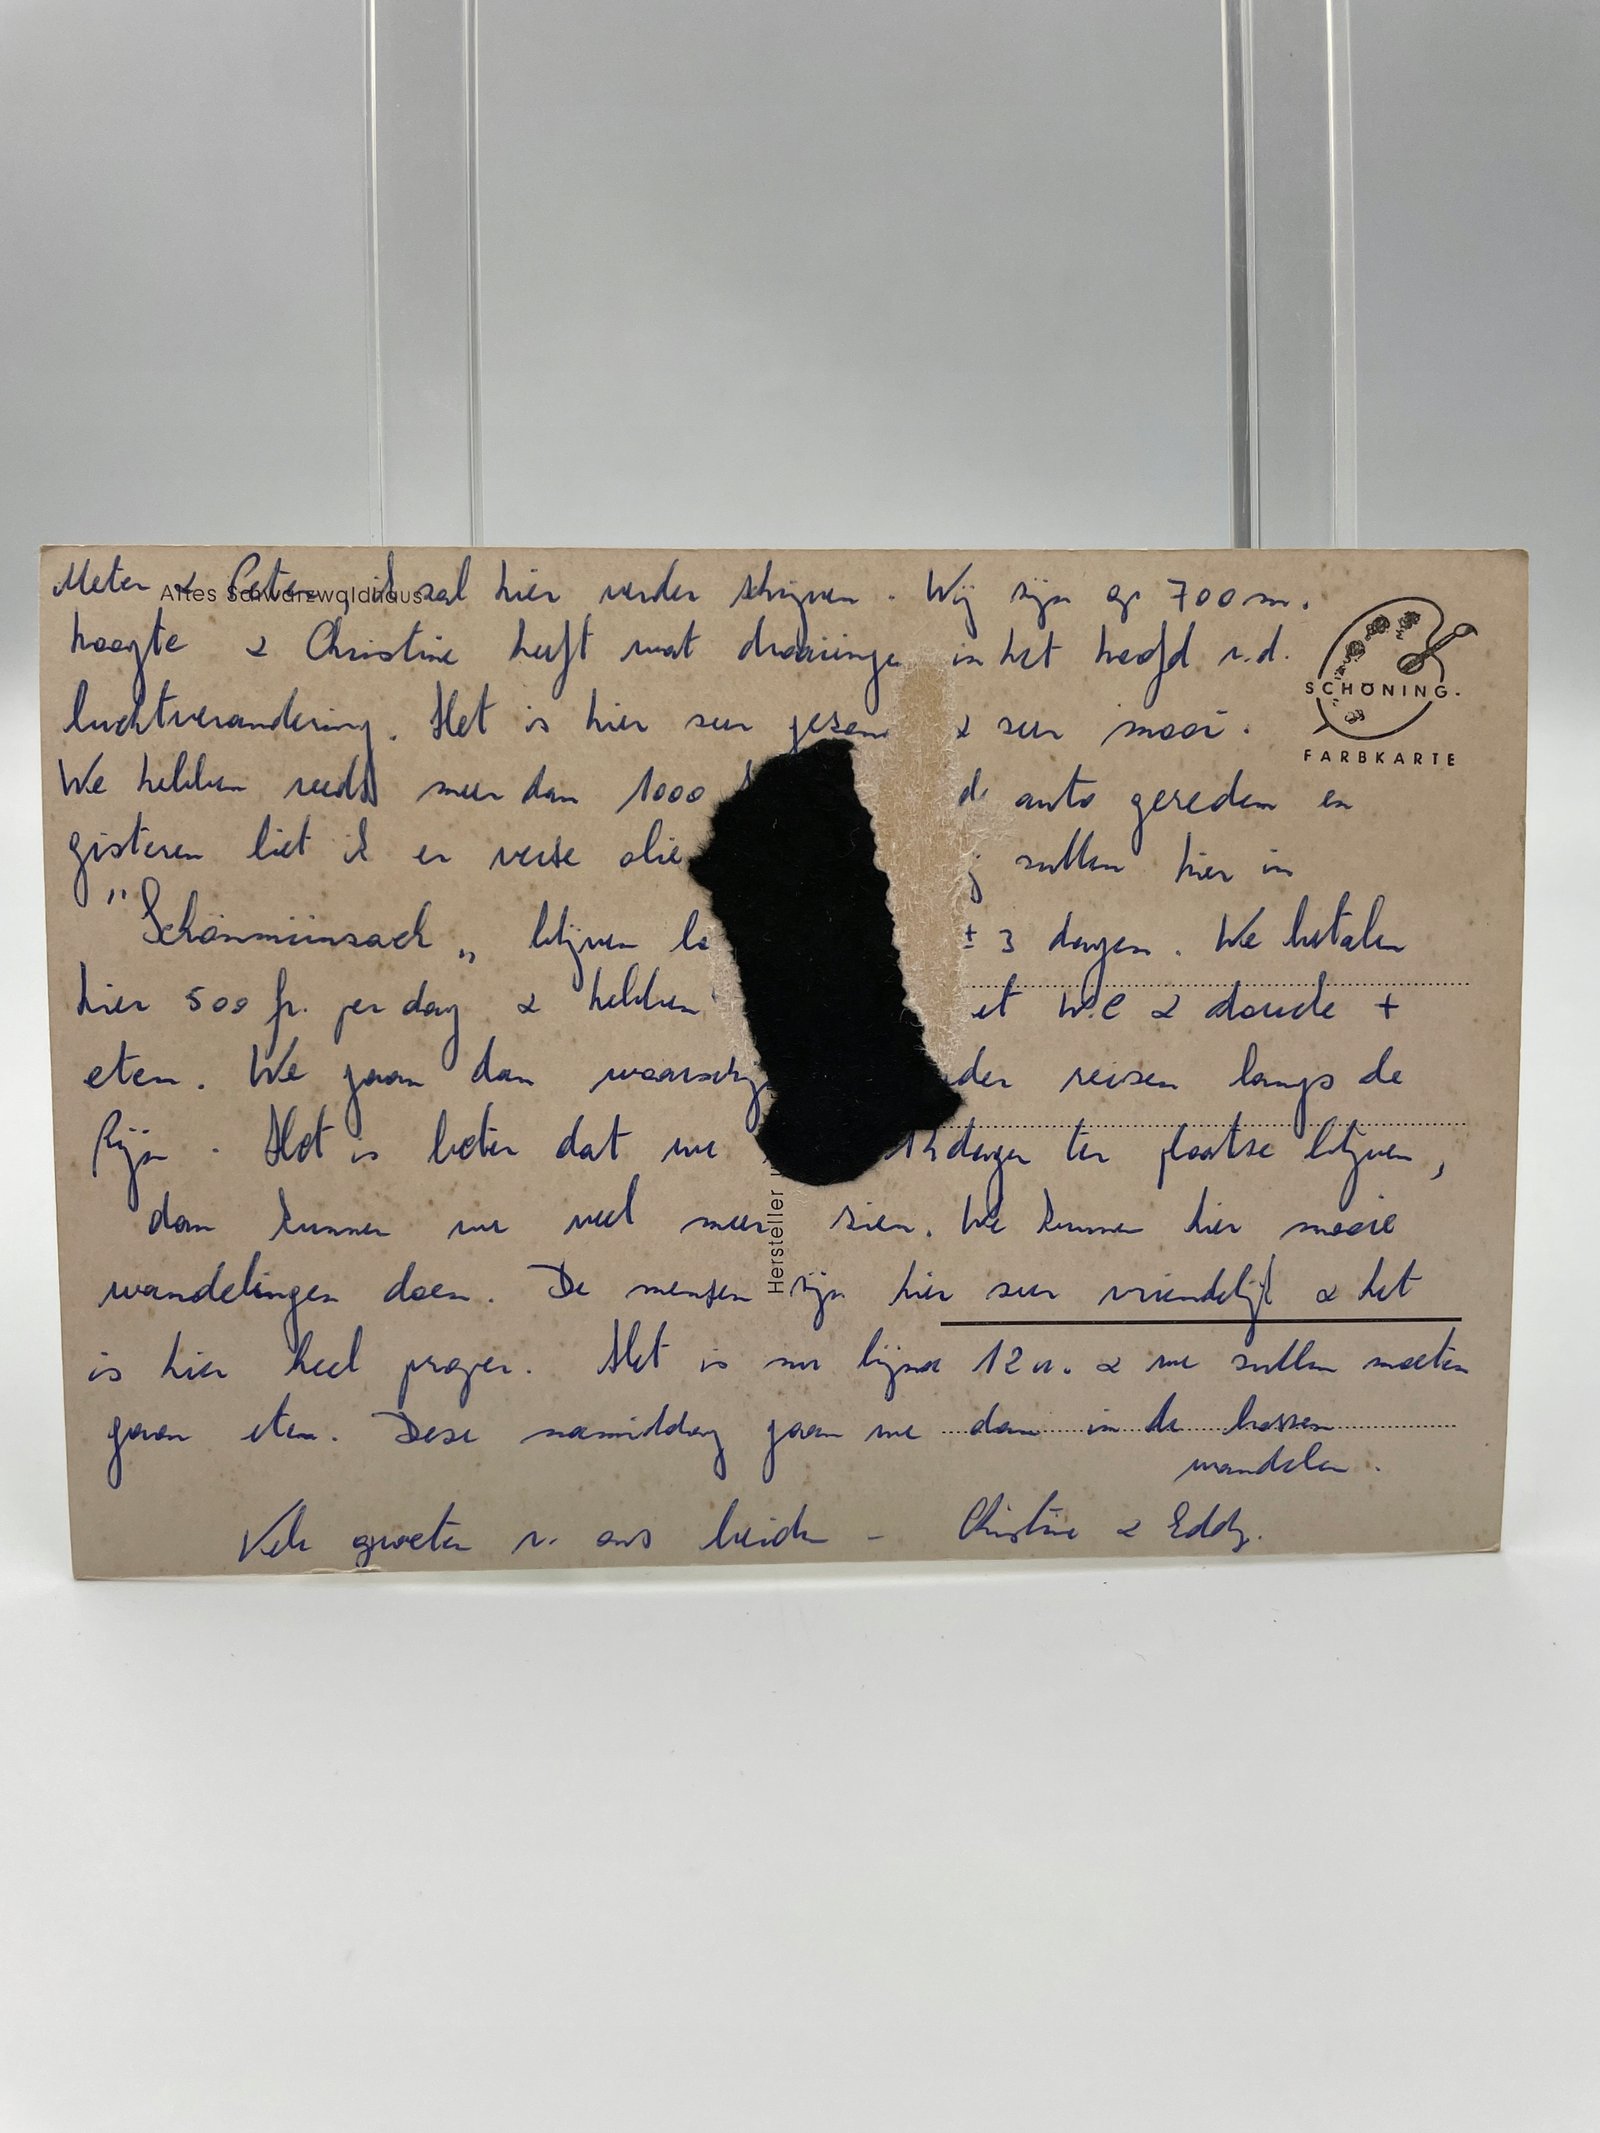 Altes Schwarzwaldhaus
Meter & Peter, ik zal hier verder schrijven. Wij zijn op 700 m.
hoogte & Christine heeft wat draaiinge in het hoofd v.d.
luchtverandering. Het is hier zeer gezon & zeer mooi.
We hebben reeds meer dan 1000 de auto gereden en
gisteren liet ik er verse olie zullen hier in
"Schönmünzach" blijven ± 3 dagen. We betalen
hier 500 fr. per dag & hebben et W.C & douche +
eten. We gaan dan waarschij der reizen langs de
Rijn. Het is beter dat we dagen ter plaatse blijven,
dan kunnen we veel meer zien. We kunnen hier mooie
wandelingen doen. De mensen zijn hier zeer vriendelijk & het
is hier heel proper. Het is nu bijna 12 u. & we zullen moeten
gaan eten. Deze namiddag gaan we dan in de bossen
wandelen.
Vele groeten v. ons beiden - Christine & Eddy.
SCHÖNING.
FARBKARTE
Hersteller